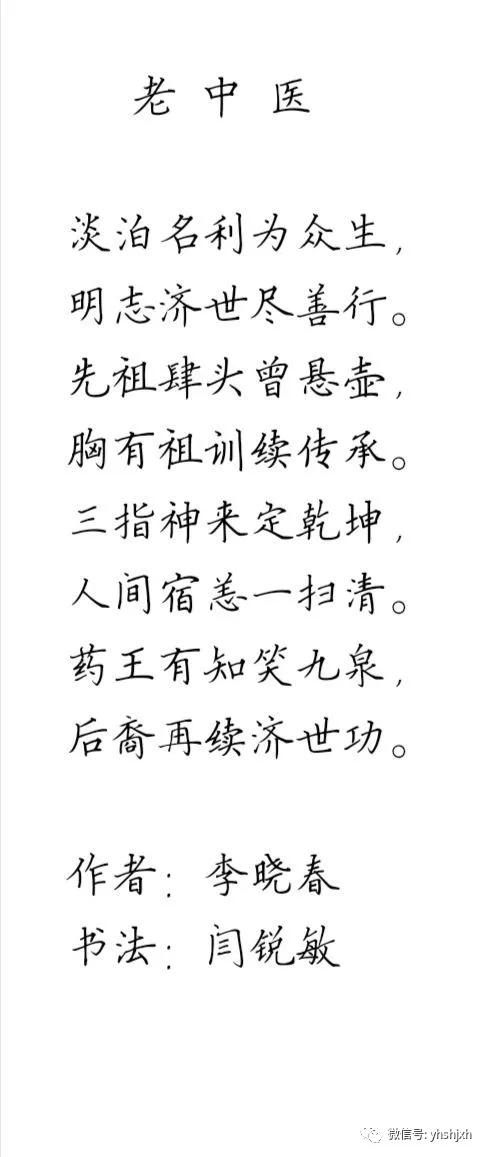 老中医
淡泊名利为众生,
明志济世尽善行。
先祖肆头曾悬壶,
胸有祖训续传承。
三指神来定乾坤,
人间宿恙一扫清。
药王有知笑九泉,
后裔再续济世功。
作者:李晓春
书法:闫锐敏
微信号: yhshjxh